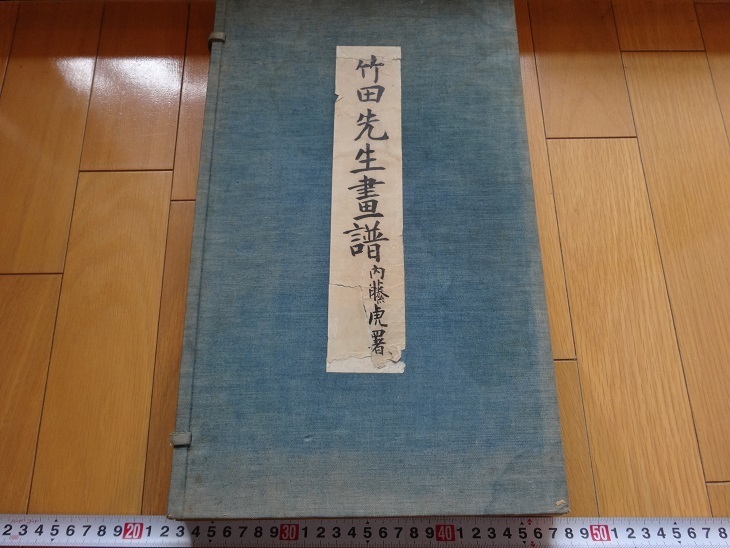 竹田先生畫譜
内藤虎署
2 3 4 5 6 7 8 9 20 1 2 3 4 5 6 7 8 9 30 1 2 3 4 5 6 7 8 9 40 1 2 3 4 5 6 7 8 9 50 1 2 3 4 5 6 7